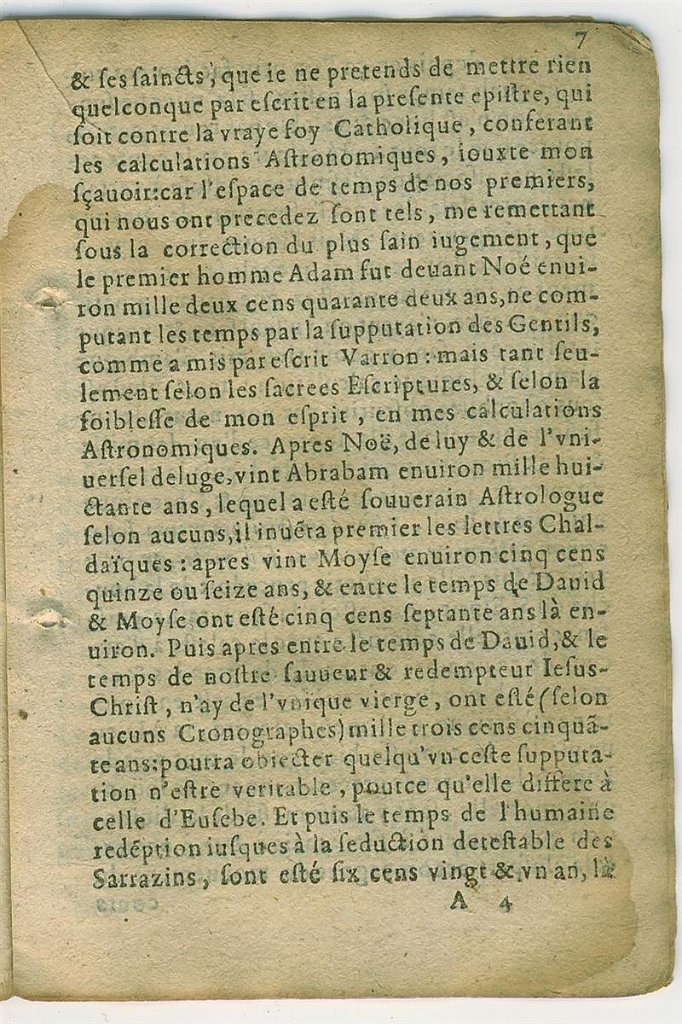 7
& ſes ſaincts, que ie ne pretends de mettre rien
quelconque par eſcrit en la preſente epiſtre, qui
ſoit contre la vraye foy Catholique, conferant
les calculations Aſtronomiques, iouxte mon
ſçauoir: car l'eſpace de temps de nos premiers,
qui nous ont precedez ſont tels, me remettant
ſous la correction du plus ſain iugement, que
le premier homme Adam fut deuant Noé enui-
ron mille deux cens quarante deux ans, ne com-
putant les temps par la ſupputation des Gentils,
comme a mis par eſcrit Varron: mais tant ſeu-
lement ſelon les ſacrees Eſcriptures, & ſelon la
foibleſſe de mon eſprit, en mes calculations
Aſtronomiques. Apres Noë, de luy & de l'vni-
uerſel deluge, vint Abrabam enuiron mille hui-
ctante ans, lequel a eſté ſouuerain Aſtrologue
ſelon aucuns, il inuēta premier les lettres Chal-
daïques: apres vint Moyſe enuiron cinq cens
quinze ou ſeize ans, & entre le temps de Dauid
& Moyſe ont eſté cinq cens ſeptante ans là en-
uiron. Puis apres entre le temps de Dauid, & le
temps de noſtre ſauueur & redempteur Ieſus-
Chriſt, n'ay de l'vnique vierge, ont eſté (ſelon
aucuns Cronographes) mille trois cens cinquã-
te ans: pourra obiecter quelqu'vn ceſte ſupputa-
tion n'eſtre veritable, pource qu'elle differe à
celle d'Euſebe. Et puis le temps de l'humaine
redēption iuſques à la ſeduction deteſtable des
Sarrazins, ſont eſté ſix cens vingt & vn an, là
A 4